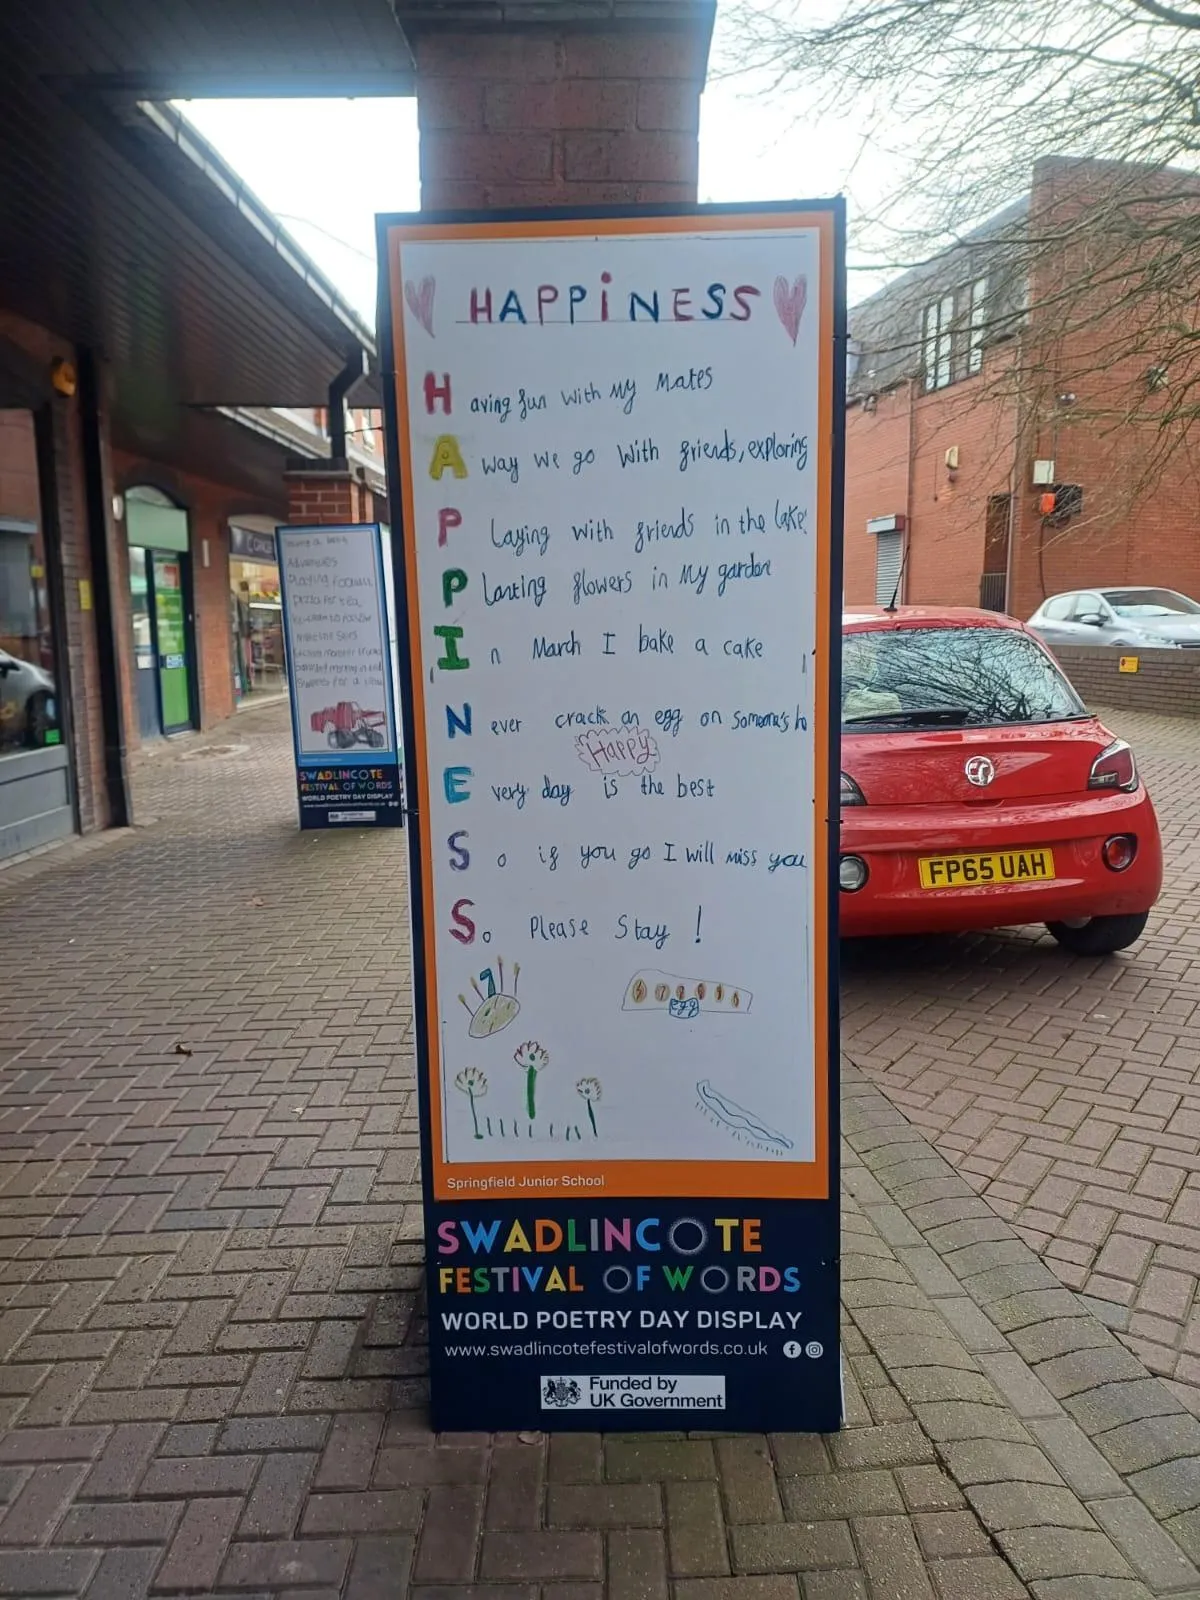 HAPPiNESS
Having fun with My Mates
Away we go with friends, exploring
PLaying with friends in the lake!
PLanting flowers in My garden
In March I bake a cake
Never crack an egg on someone's
Happy
Every day is the best
So if you go I will miss you
So Please Stay !
7
egg
Springfield Junior School
SWADLINCOTE
FESTIVAL OF WORDS
WORLD POETRY DAY DISPLAY
www.swadlincotefestivalofwords.co.uk
Funded by
UK Government
Adventures
Playing Football
pizza for tea
SWADLINCOTE
FESTIVAL OF WORDS
WORLD POETRY DAY DISPLAY
FP65 UAH